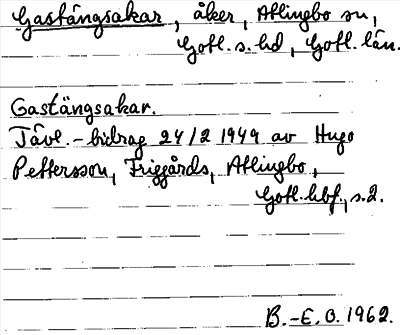 Gastängsakar, åker, Atlingbo sn,
Gotl. s. hd, Gotl. län.
Gastängsakar.
Tävl.-bidrag 24/2 1949 av Hugo
Pettersson, Friggårds, Atlingbo,
Gotl. hbf., s. 2.
B.-E. O. 1962.